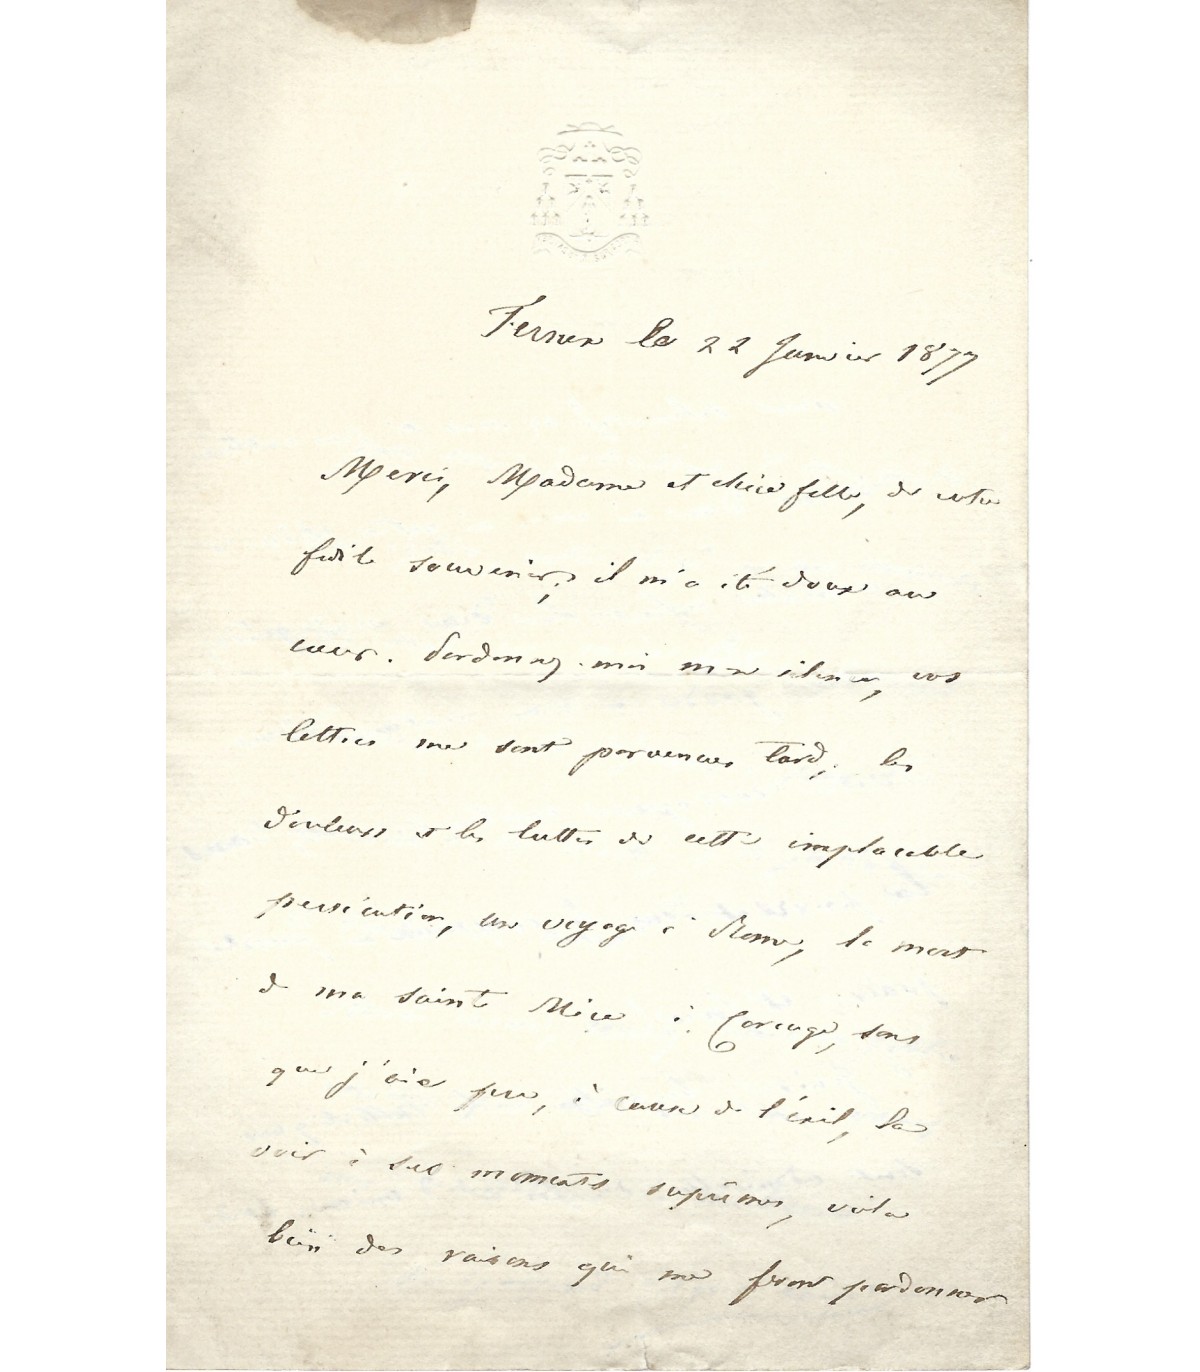 Fernex le 22 Janvier 1877
Merci, Madame et chère fille, de votre
fidèle souvenir, il m'a été doux au
cœur. Pardonnez-moi mon silence, vos
lettres me sont parvenues tard, les
douleurs et les luttes de cette implacable
persécution, un voyage à Rome, la mort
de ma sainte Mère à Carouge, sans
que j'aie pu, à cause de l'exil, la
voir à ses moments suprêmes, voila
bien des raisons qui me feront pardonner